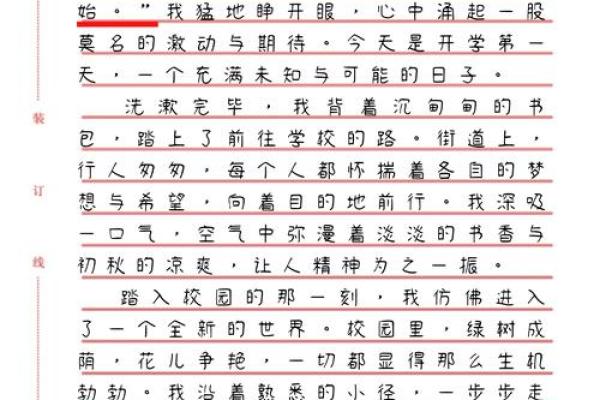 始。”我猛地睁开眼，心中涌起一股
莫名的激动与期待。今天是开学第一
天，一个充满未知与可能的日子。
洗漱完毕，我背着沉甸甸的书
包，踏上了前往学校的路。街道上，
行人匆匆，每个人都怀揣着各自的梦
想与希望，向着目的地前行。我深吸
一口气，空气中弥漫着淡淡的书香与
初秋的凉爽，让人精神为之一振。
踏入校园的那一刻，我仿佛进入
了一个全新的世界。校园里，绿树成
荫，花儿争艳，一切都显得那么生机
勃勃。我沿着熟悉的小径，一步步走
装
订
线